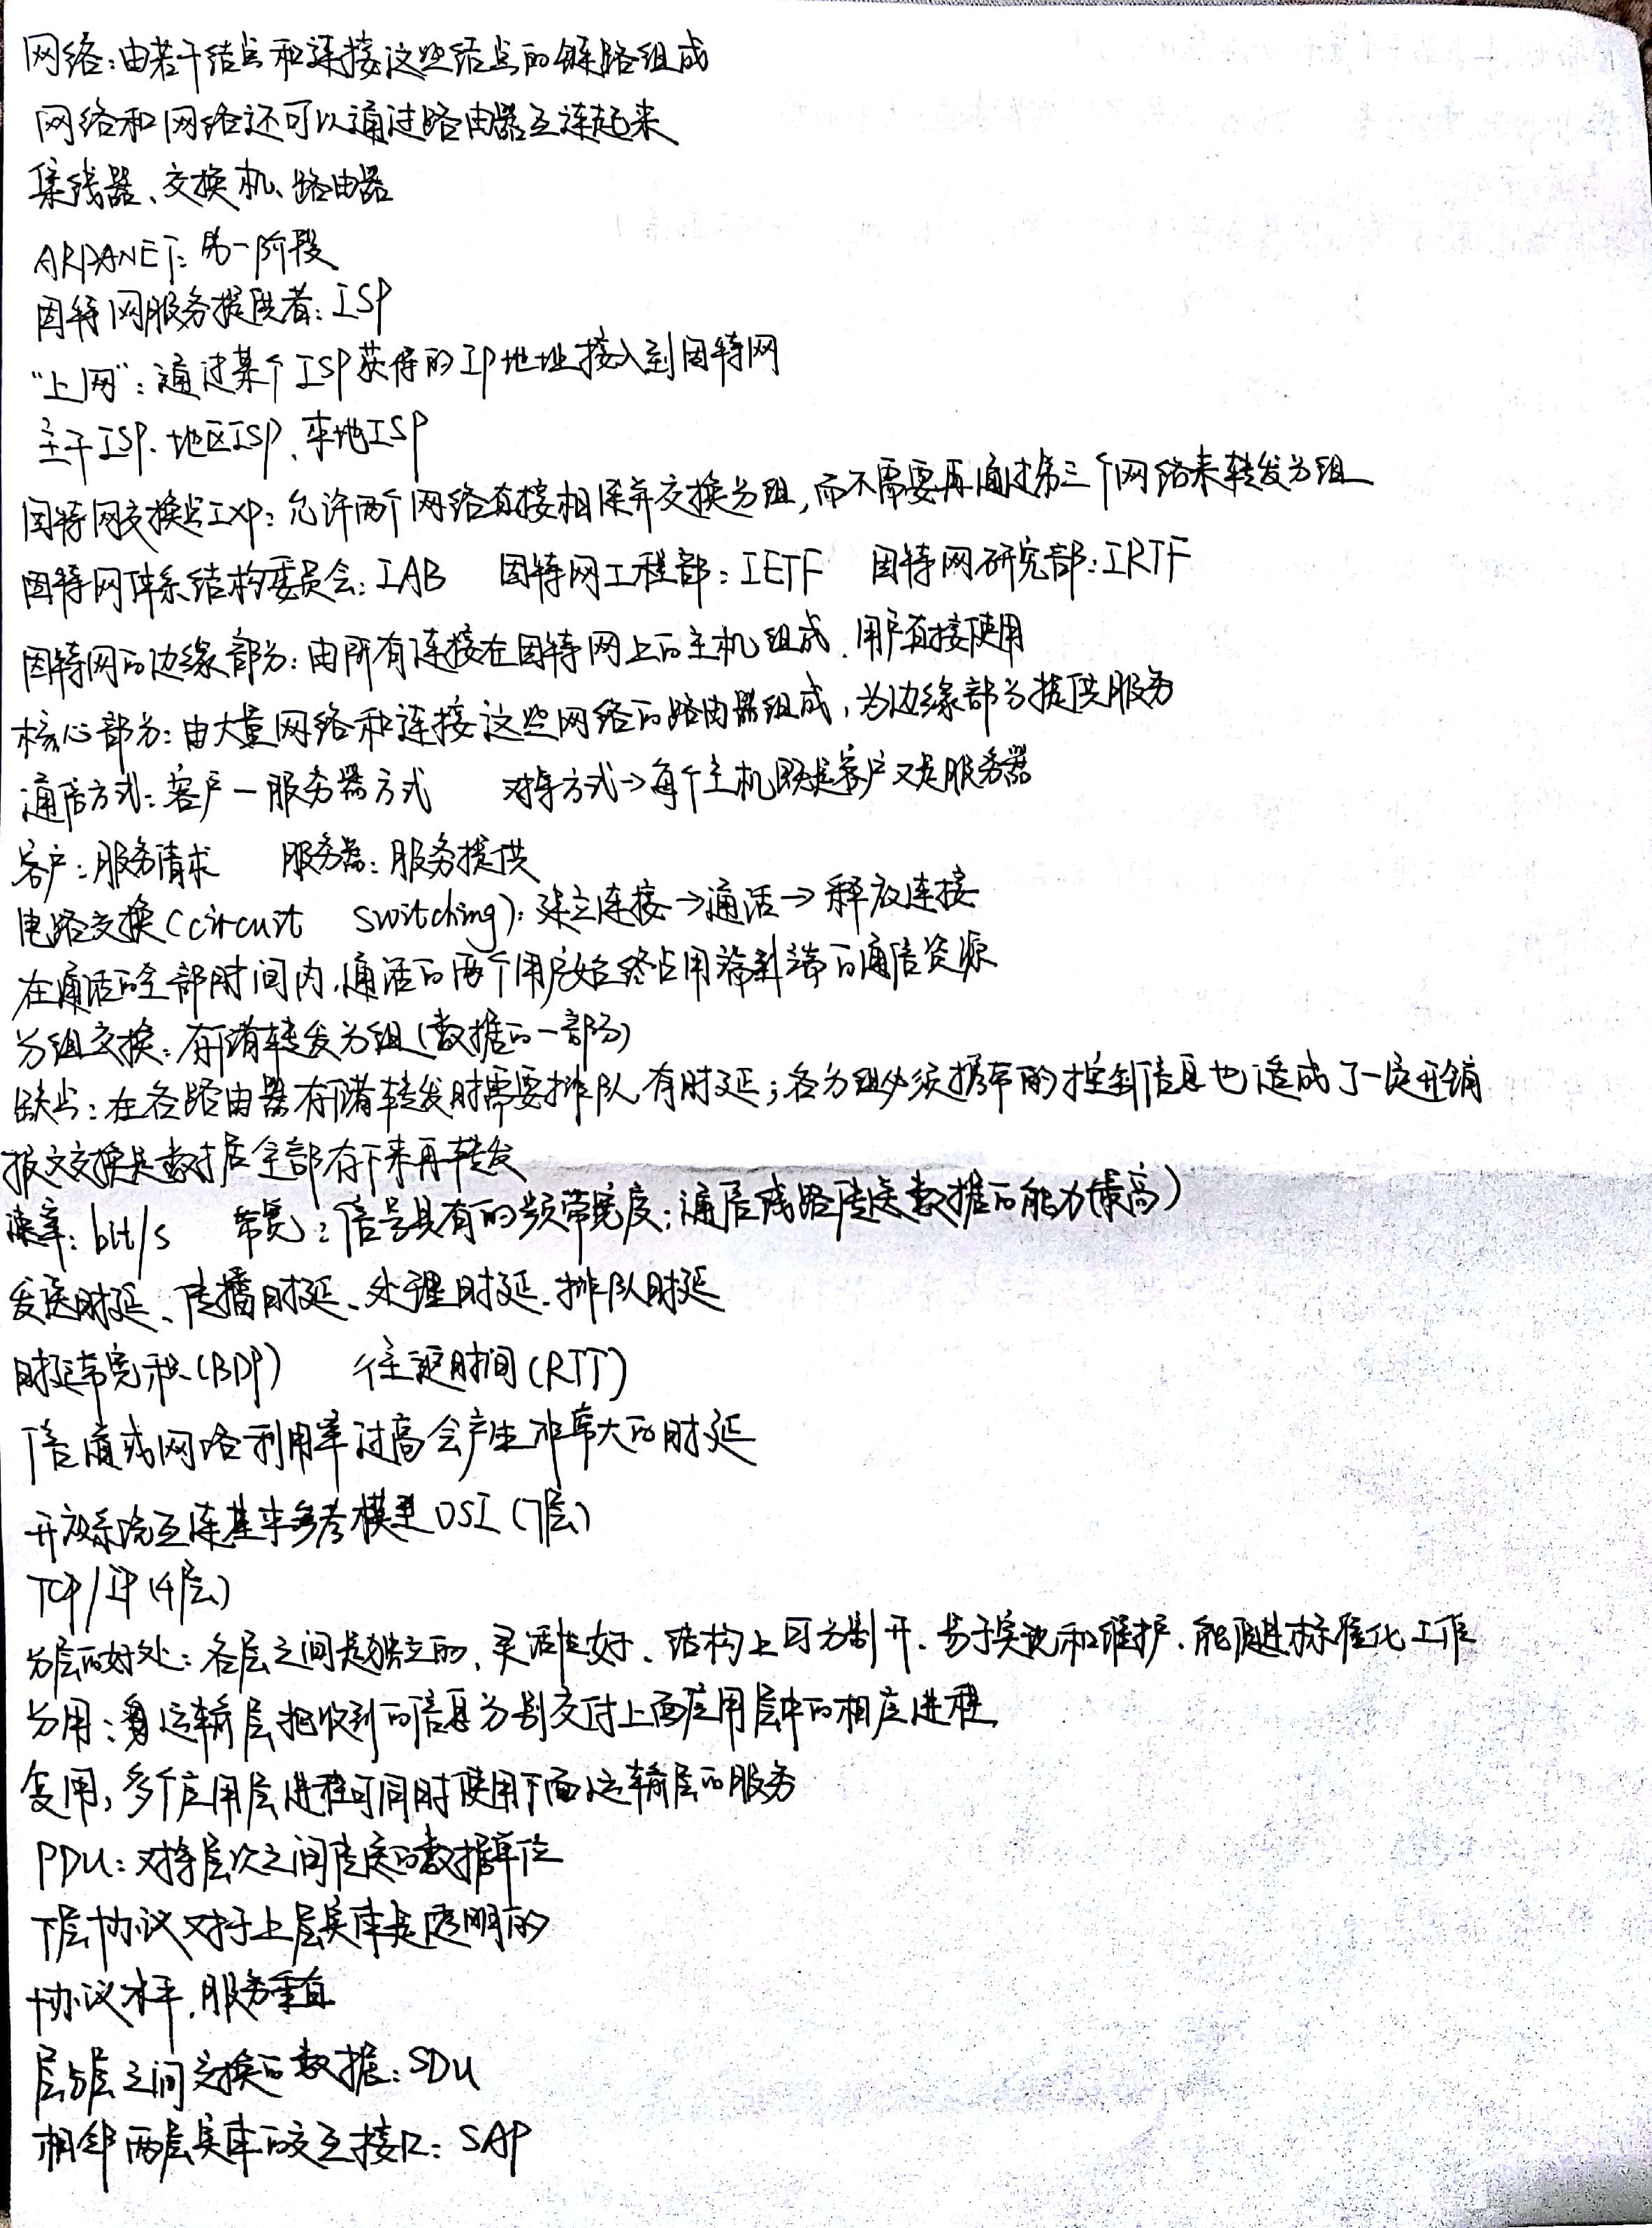 网络：由若干结点和连接这些结点的链路组成
网络和网络还可以通过路由器互连起来
集线器、交换机、路由器
ARPANET：第一阶段
因特网服务提供者：ISP
“上网”：通过某个ISP获得的IP地址接入到因特网
主干ISP、地区ISP、本地ISP
因特网交换点IXP：允许两个网络直接相连并交换分组，而不需要再通过第三个网络来转发分组
因特网体系结构委员会：IAB 因特网工程部：IETF 因特网研究部：IRTF
因特网的边缘部分：由所有连接在因特网上的主机组成．用户直接使用
核心部分：由大量网络和连接这些网络的路由器组成，为边缘部分提供服务
通信方式：客户－服务器方式 对等方式→每个主机既是客户又是服务器
客户：服务请求 服务器：服务提供
电路交换(circuit switching)：建立连接→通话→释放连接
在通话的全部时间内，通话的两个用户始终占用端到端的通信资源
分组交换：存储转发分组(数据的一部分)
缺点：在各路由器存储转发时需要排队，有时延；各分组必须携带的控制信息也造成了一定开销
报文交换是数据全部存下来再转发
速率：bit/s 带宽：信号具有的频带宽度；通信线路传送数据的能力(最高)
发送时延、传播时延、处理时延、排队时延
时延带宽积(BDP) 往返时间(RTT)
信道或网络利用率过高会产生非常大的时延
开放系统互连基本参考模型OSI(7层)
TCP/IP(4层)
分层的好处：各层之间是独立的、灵活性好、结构上可分割开、易于实现和维护、能促进标准化工作
分用：运输层把收到的信息分别交付上面应用层中的相应进程
复用，多个应用层进程可同时使用下面运输层的服务
PDU：对等层次之间传送的数据单位
下层协议对于上层实体是透明的
协议水平，服务垂直
层与层之间交换的数据：SDU
相邻两层实体的交互接口：SAP